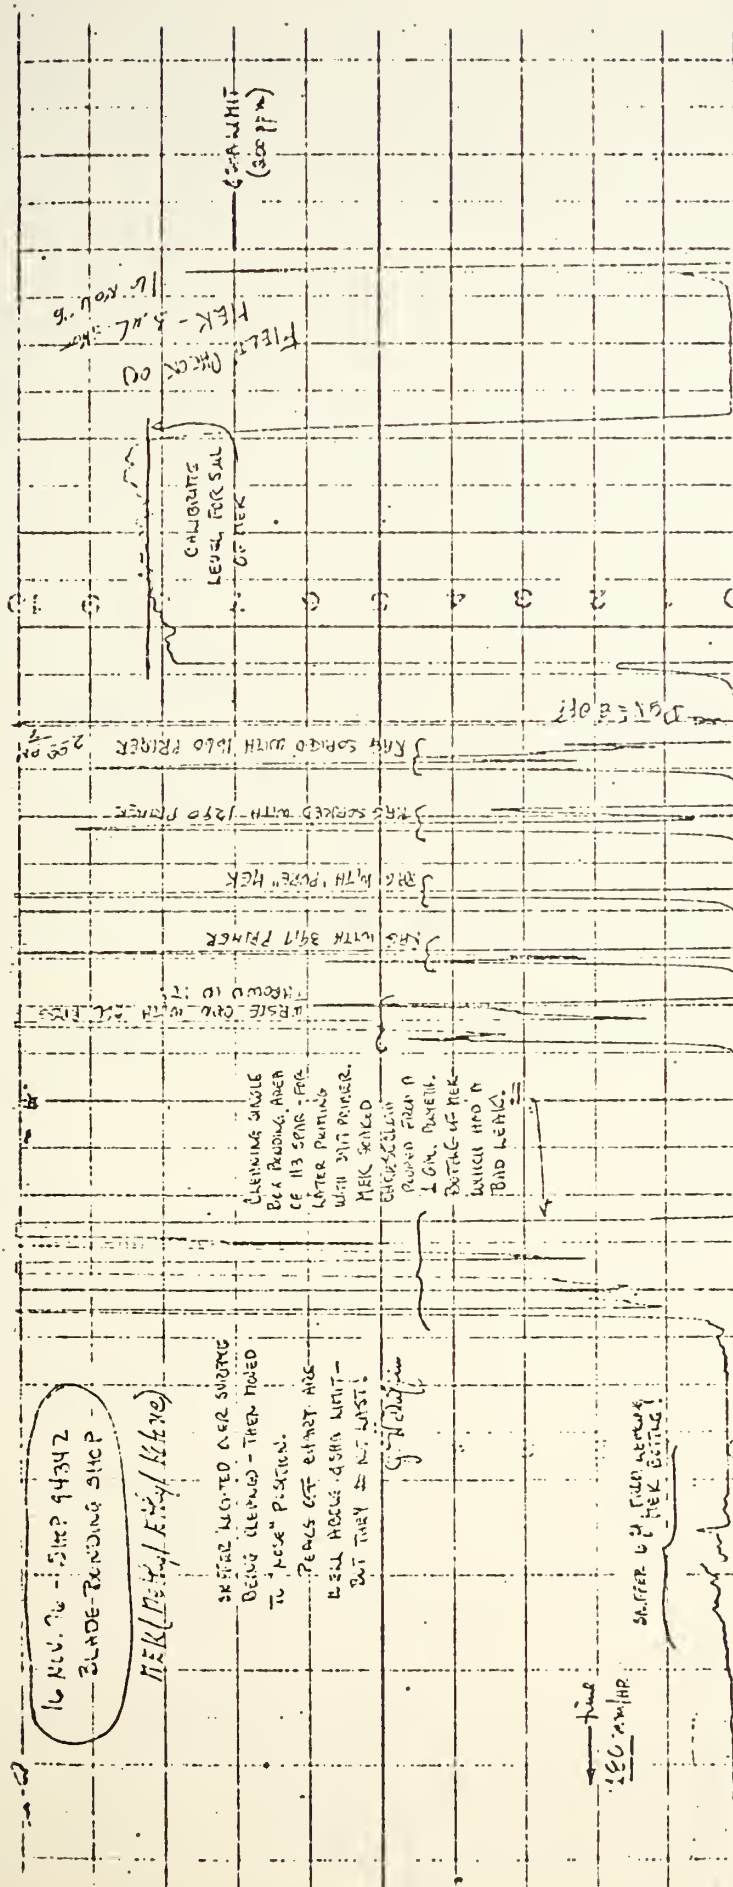 16 NOV. 76 - SHOP 94342
BLADE-BONDING SHOP -
MEK (Methyl Ethyl Ketone)
SNIFFER LOCATED OVER SURFACE
BEING CLEANED - THEN MOVED
TO "NOSE" POSITION.
PEAKS OFF CHART ARE
WELL ABOVE OSHA LIMIT -
BUT THEY DO NOT LAST!
time
SNIFFER 6" FROM LEAKING
MEK BOTTLE!
CLEANING SINGLE
BOX BONDING AREA
OF 113 SPAR - FOR
LATER PRIMING
WITH 3917 PRIMER.
MEK SOAKED
CHEESECLOTH
POURED FROM A
1 GAL. POLYETH.
BOTTLE OF MEK
WHICH HAD A
BAD LEAK.
WASTE CAN WITH MEK RAGS
THROWN IN IT.
RAG WITH 3917 PRIMER
RAG WITH "PURE" MEK
RAG SOAKED WITH 1290 PRIMER
RAG SOAKED WITH 1660 PRIMER
2:00 PM
CALIBRATE
LEVEL FOR 5UL
OF MEK
FIELD CHECK ON
MEK - 3 UL SHOT
16 NOV 76
OSHA LIMIT
(200 ppm)
0
1
2
3
4
5
6
7